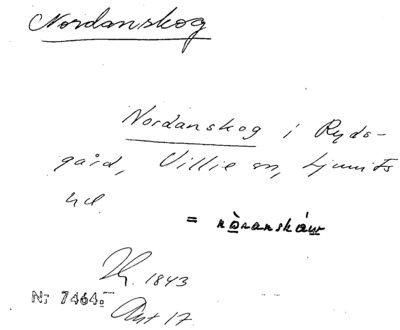 Nordanskog
Nordanskog i Ryds-
gård, Villie sn, Ljunits
hd
= nòranskáw
1843
Nr 7464.
Ant 17